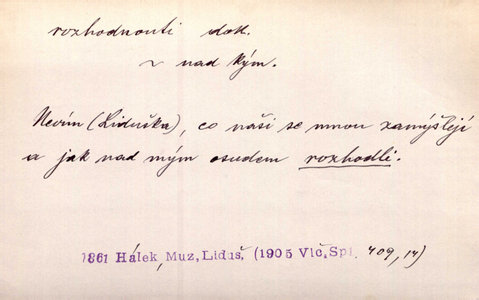 rozhodnouti dok.
~ nad kým.
Nevím (Liduška), co naši se mnou zamýšlejí
a jak nad mým osudem rozhodli.
1861 Hálek, Muz, Liduš, (1905 Vlč, Spi, 409, 14)